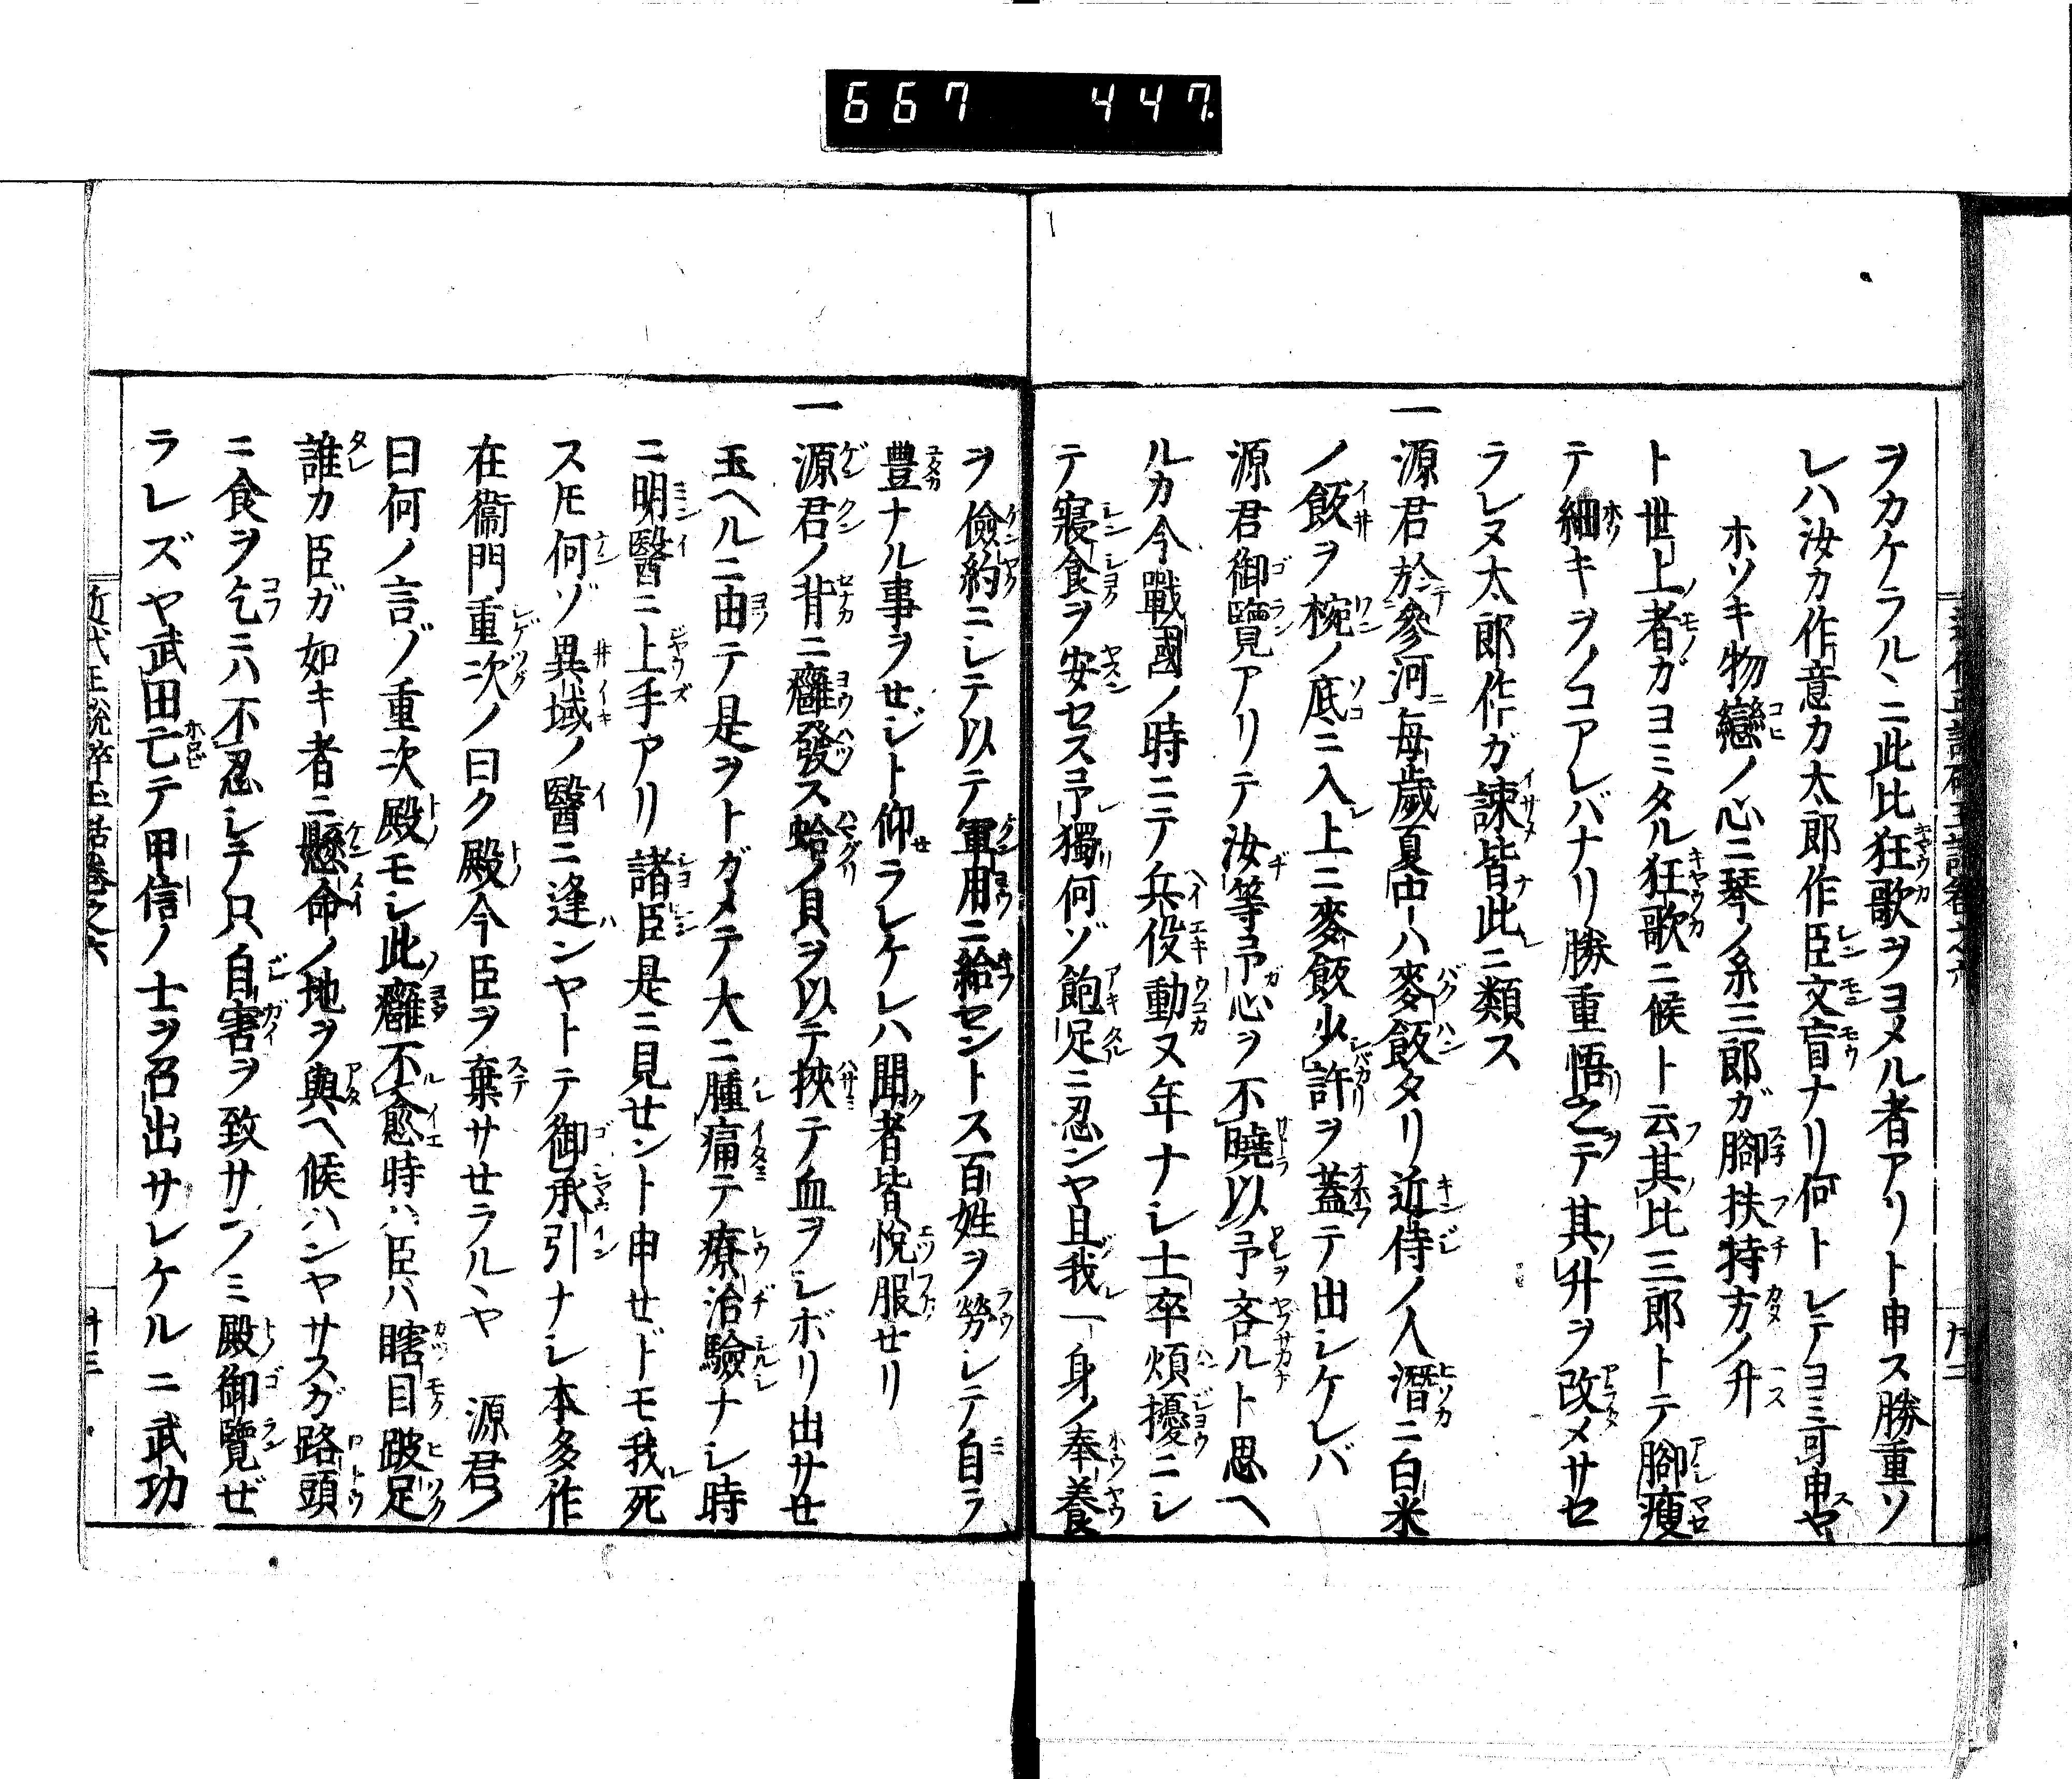 667 447
ヲカケラルヽニ此比狂歌ヲヨメル者アリト申ス勝重ソ
レハ汝カ作意カ太郎作臣文盲ナリ何トシテヨミ可申ヤ
ホソキ物戀ノ心ニ琴ノ糸三郎ガ腳扶持方ノ升
ト世上ノ者ガヨミタル狂歌ニ候ト云其比三郎トテ腳瘦
テ細キヲノコアレバナリ勝重悟之テ其升ヲ改メサセ
ラレヌ太郎作ガ諫皆此ニ類ス
一源君於參河每歲夏中ハ麥飯タリ近侍ノ人潛ニ白米
ノ飯ヲ椀ノ底ニ入上ニ麥飯少許ヲ蓋テ出シケレバ
源君御覽アリテ汝等予心ヲ不曉以予吝ルト思ヘ
ルカ今戰國ノ時ニテ兵役動ヌ年ナシ士卒煩擾ニシ
テ寢食ヲ安セス予獨何ゾ飽足ニ忍ンヤ且我一身ノ奉養
ヲ儉約ニシテ以テ軍用ニ給セントス百姓ヲ勞シテ自ラ
豊ナル事ヲせジト仰ラレケレハ聞者皆悅服せリ
一源君ノ背ニ癰發ス蛤ノ貝ヲ以テ挾テ血ヲシボリ出サせ
玉ヘルニ由テ是ヲトガメテ大ニ腫痛テ療治驗ナシ時
ニ明醫ニ上手アリ諸臣是ニ見せント申せドモ我死
スモ何ゾ異域ノ醫ニ逢ンヤトテ御承引ナシ本多作
在衞門重次ノ曰ク殿今臣ヲ棄サせラルヽヤ 源君ノ
曰何ノ言ゾノ重次殿モシ此癰不愈時ハ臣ハ瞎目跛足
誰カ臣ガ如キ者ニ懸命ノ地ヲ與ヘ候ハンヤサスガ路頭
ニ食ヲ乞ニハ不忍シテ只自害ヲ致サンノミ殿御覽ぜ
ラレズヤ武田亡テ甲信ノ士ヲ召出サレケルニ武功
卷之六
廿三